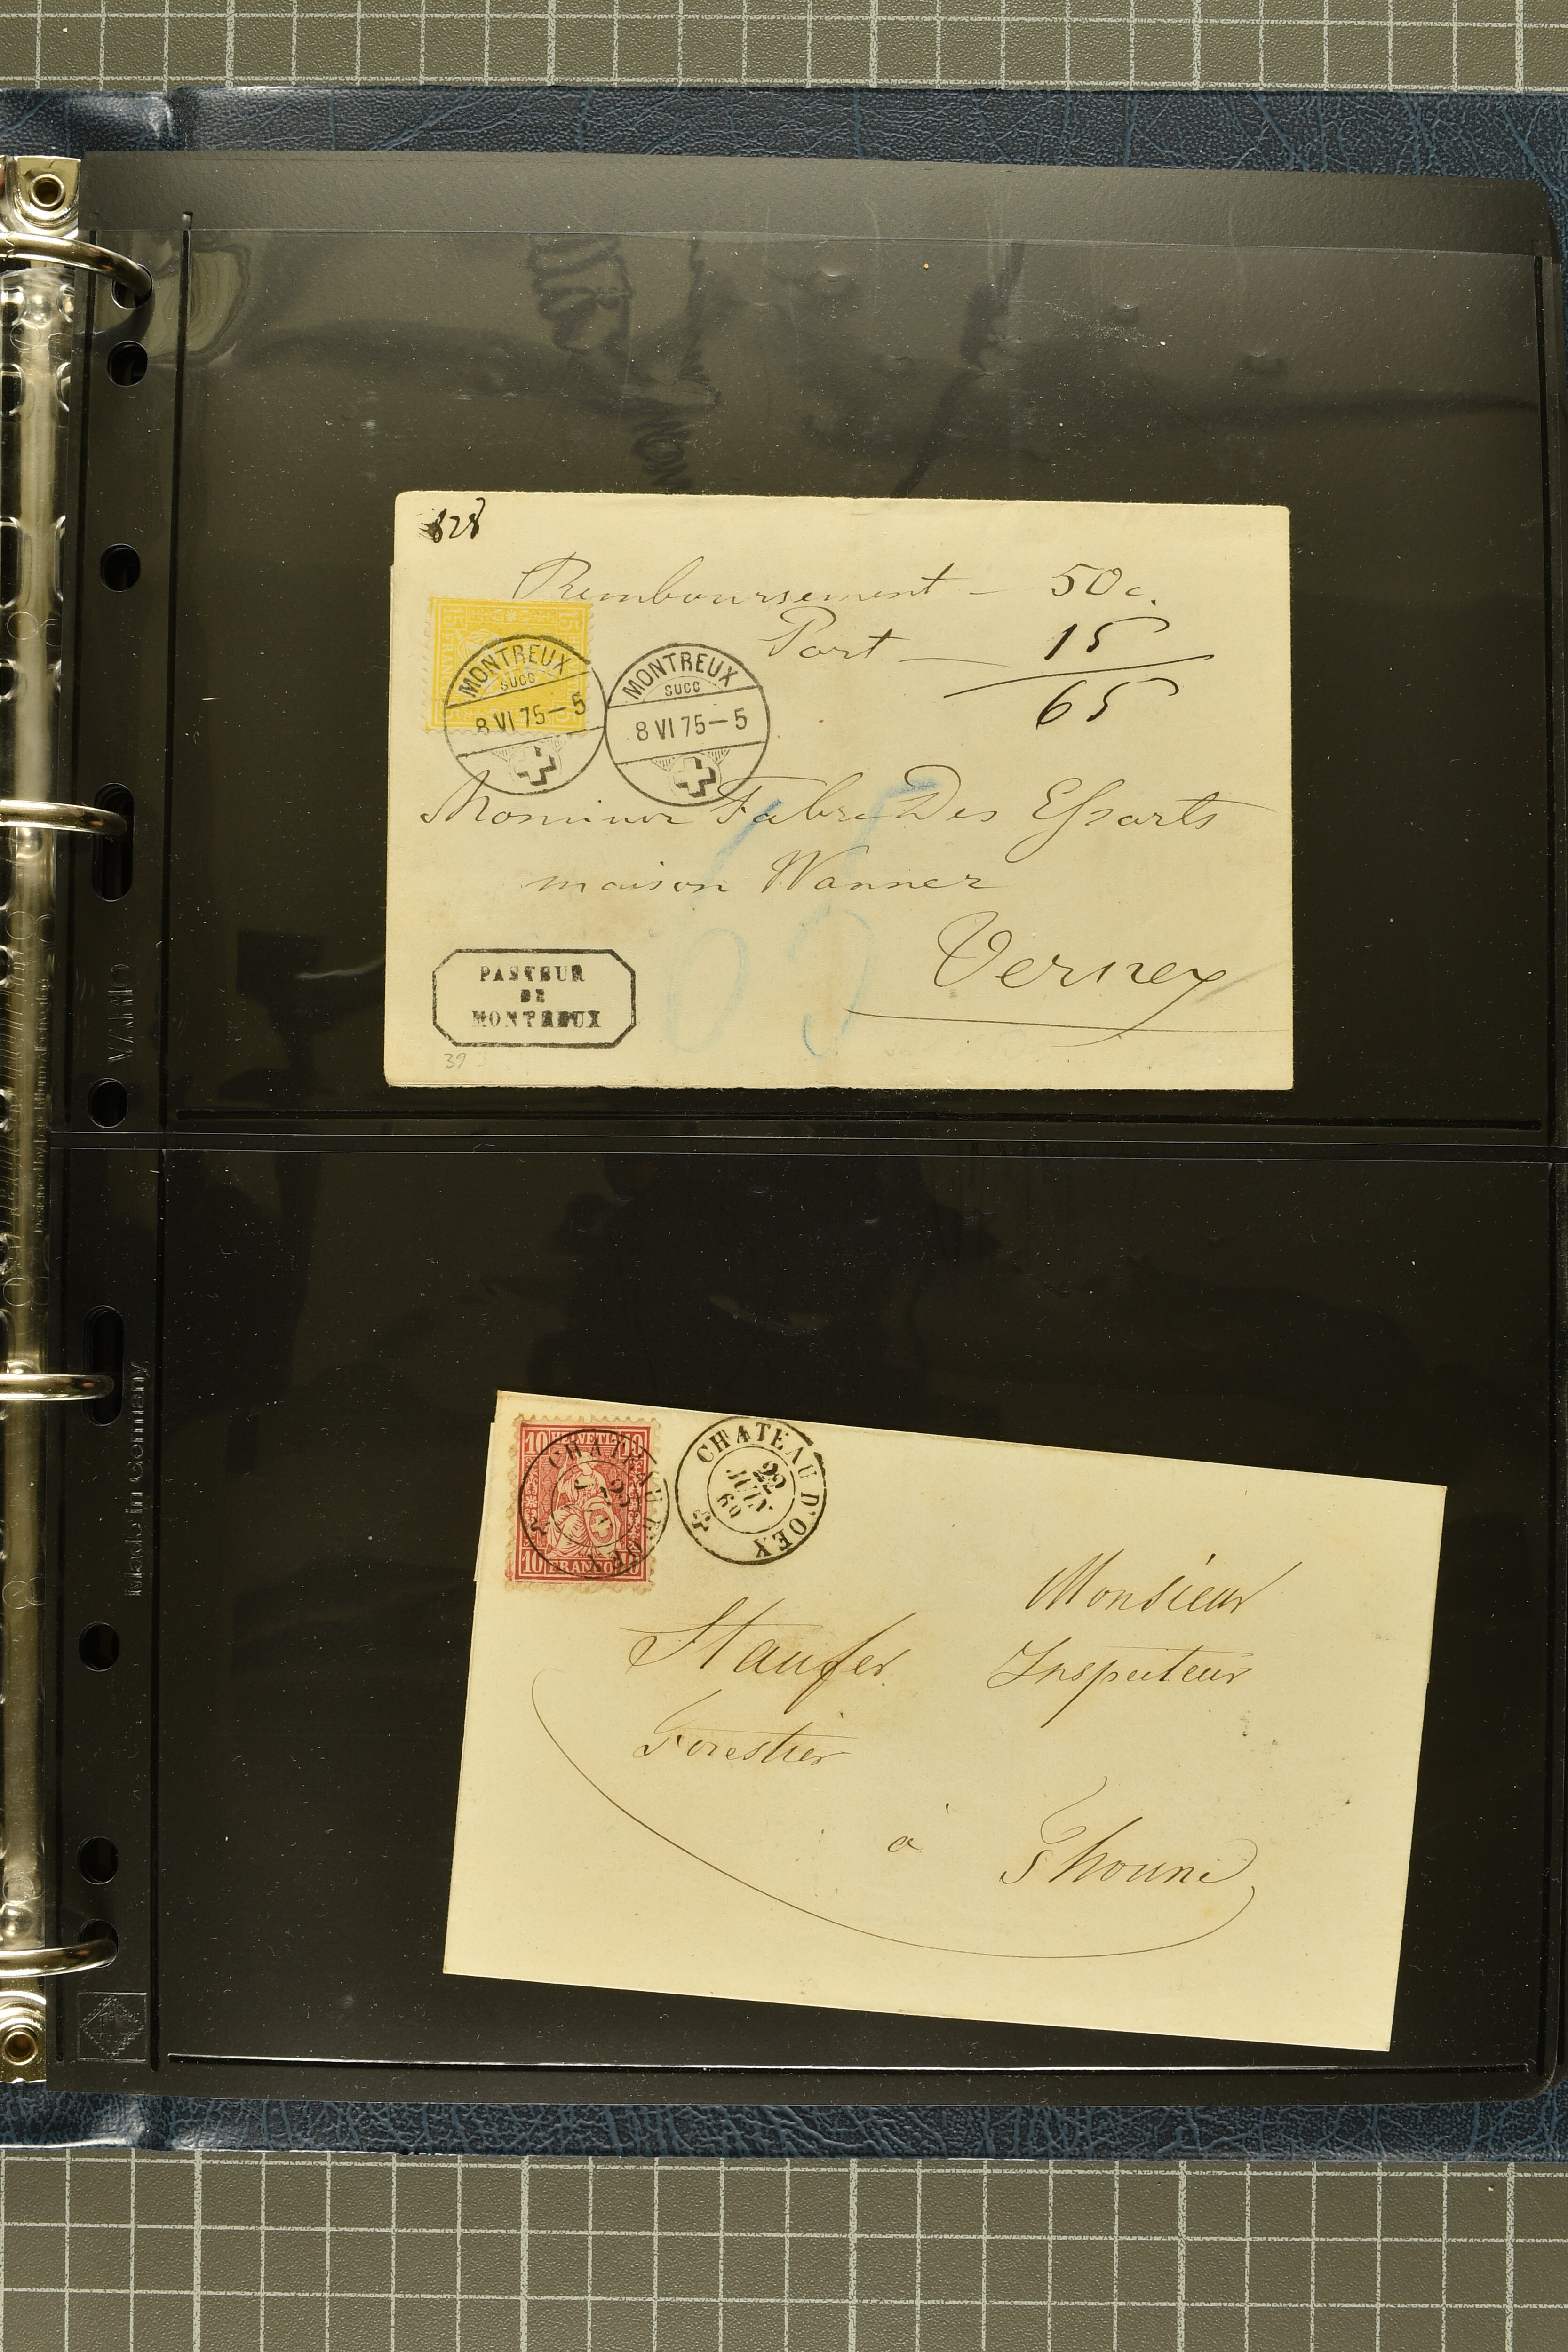 828
Remboursement - 50c.
Port — 15
65
15 15
FRANCO
MONTREUX
SUCC
8 VI 75-5
MONTREUX
SUCC
8 VI 75-5
Monsieur Fabre Des Essarts
maison Wanner
Vernex
65
PASTEUR
DE
MONTREUX
39
VARIO
Made in Germany
10 HELVETIA 10
10 FRANCO 10
CHATEAU D'OEX
22
CHATEAU D'OEX
22
JUIN
69
Monsieur
Staufer Inspecteur
Forestier
à Thoune